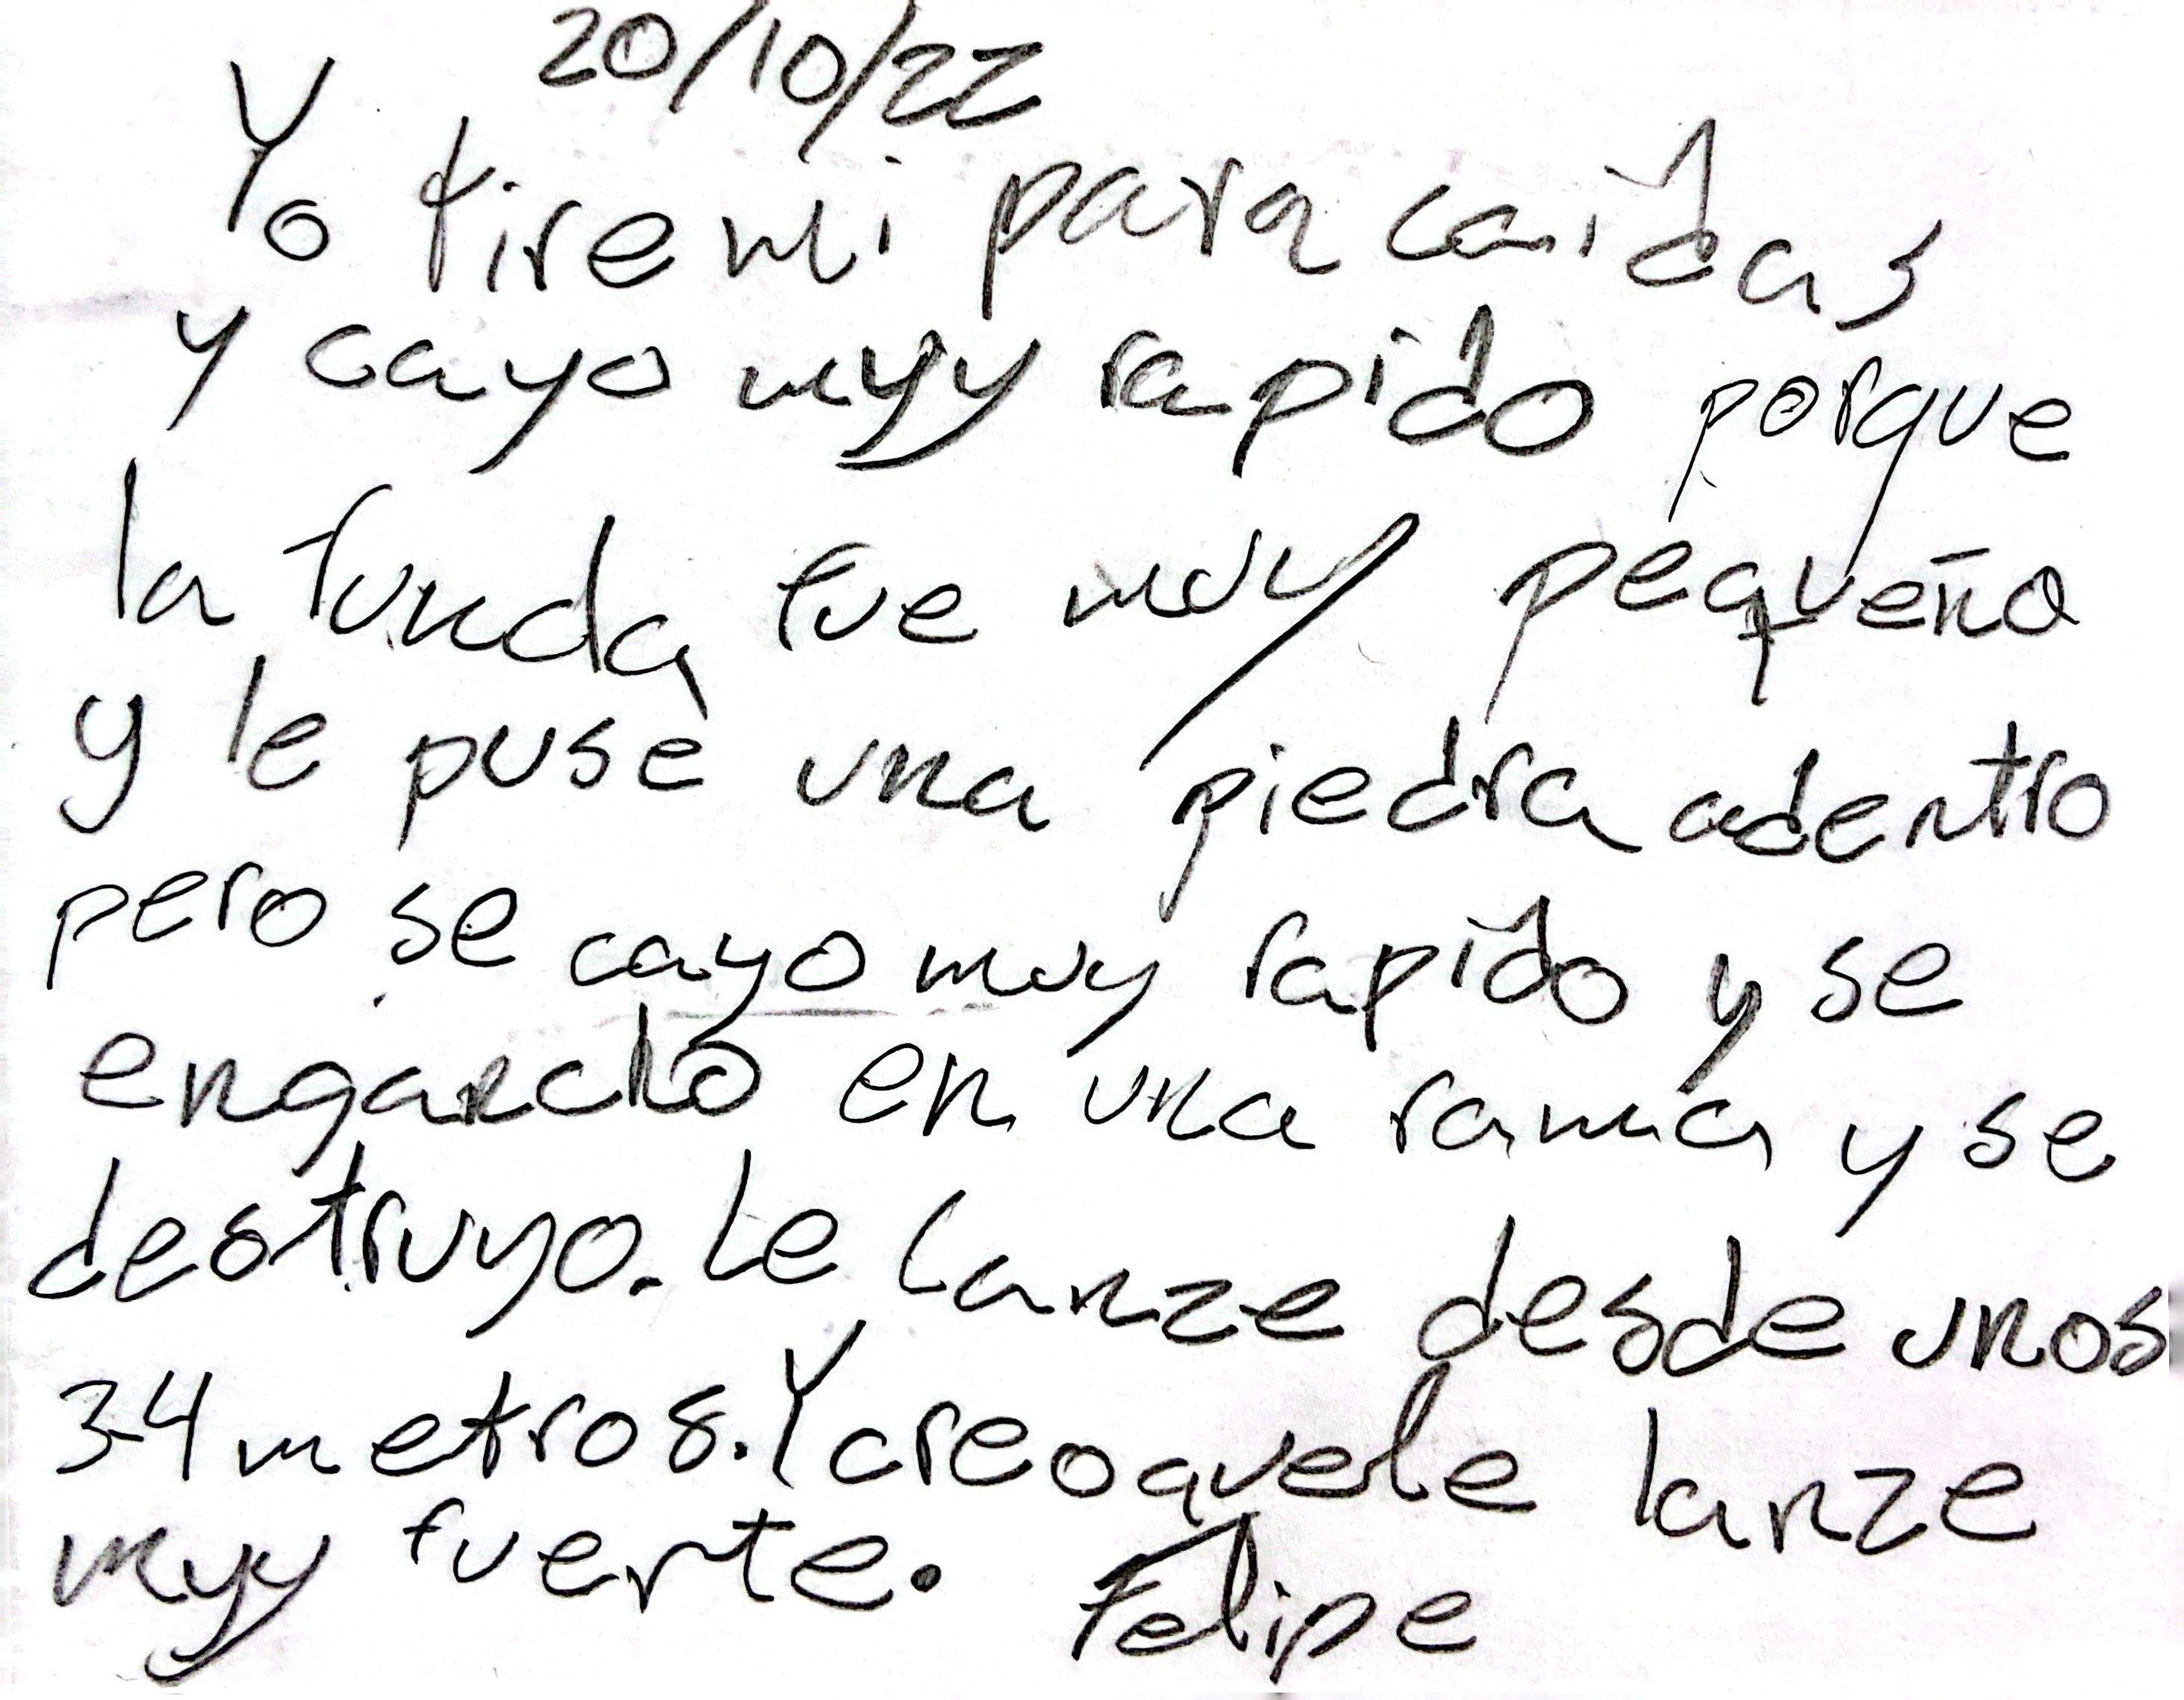 20/10/22
Yo tire mi para caidas
y cayo muy rapido porque
la funda fue muy pequeño
y le puse una piedra adentro
pero se cayo muy rapido y se
engancho en una rama y se
destruyo. Le lanze desde unos
3-4 metros. Y creo que le lanze
muy fuerte. Felipe